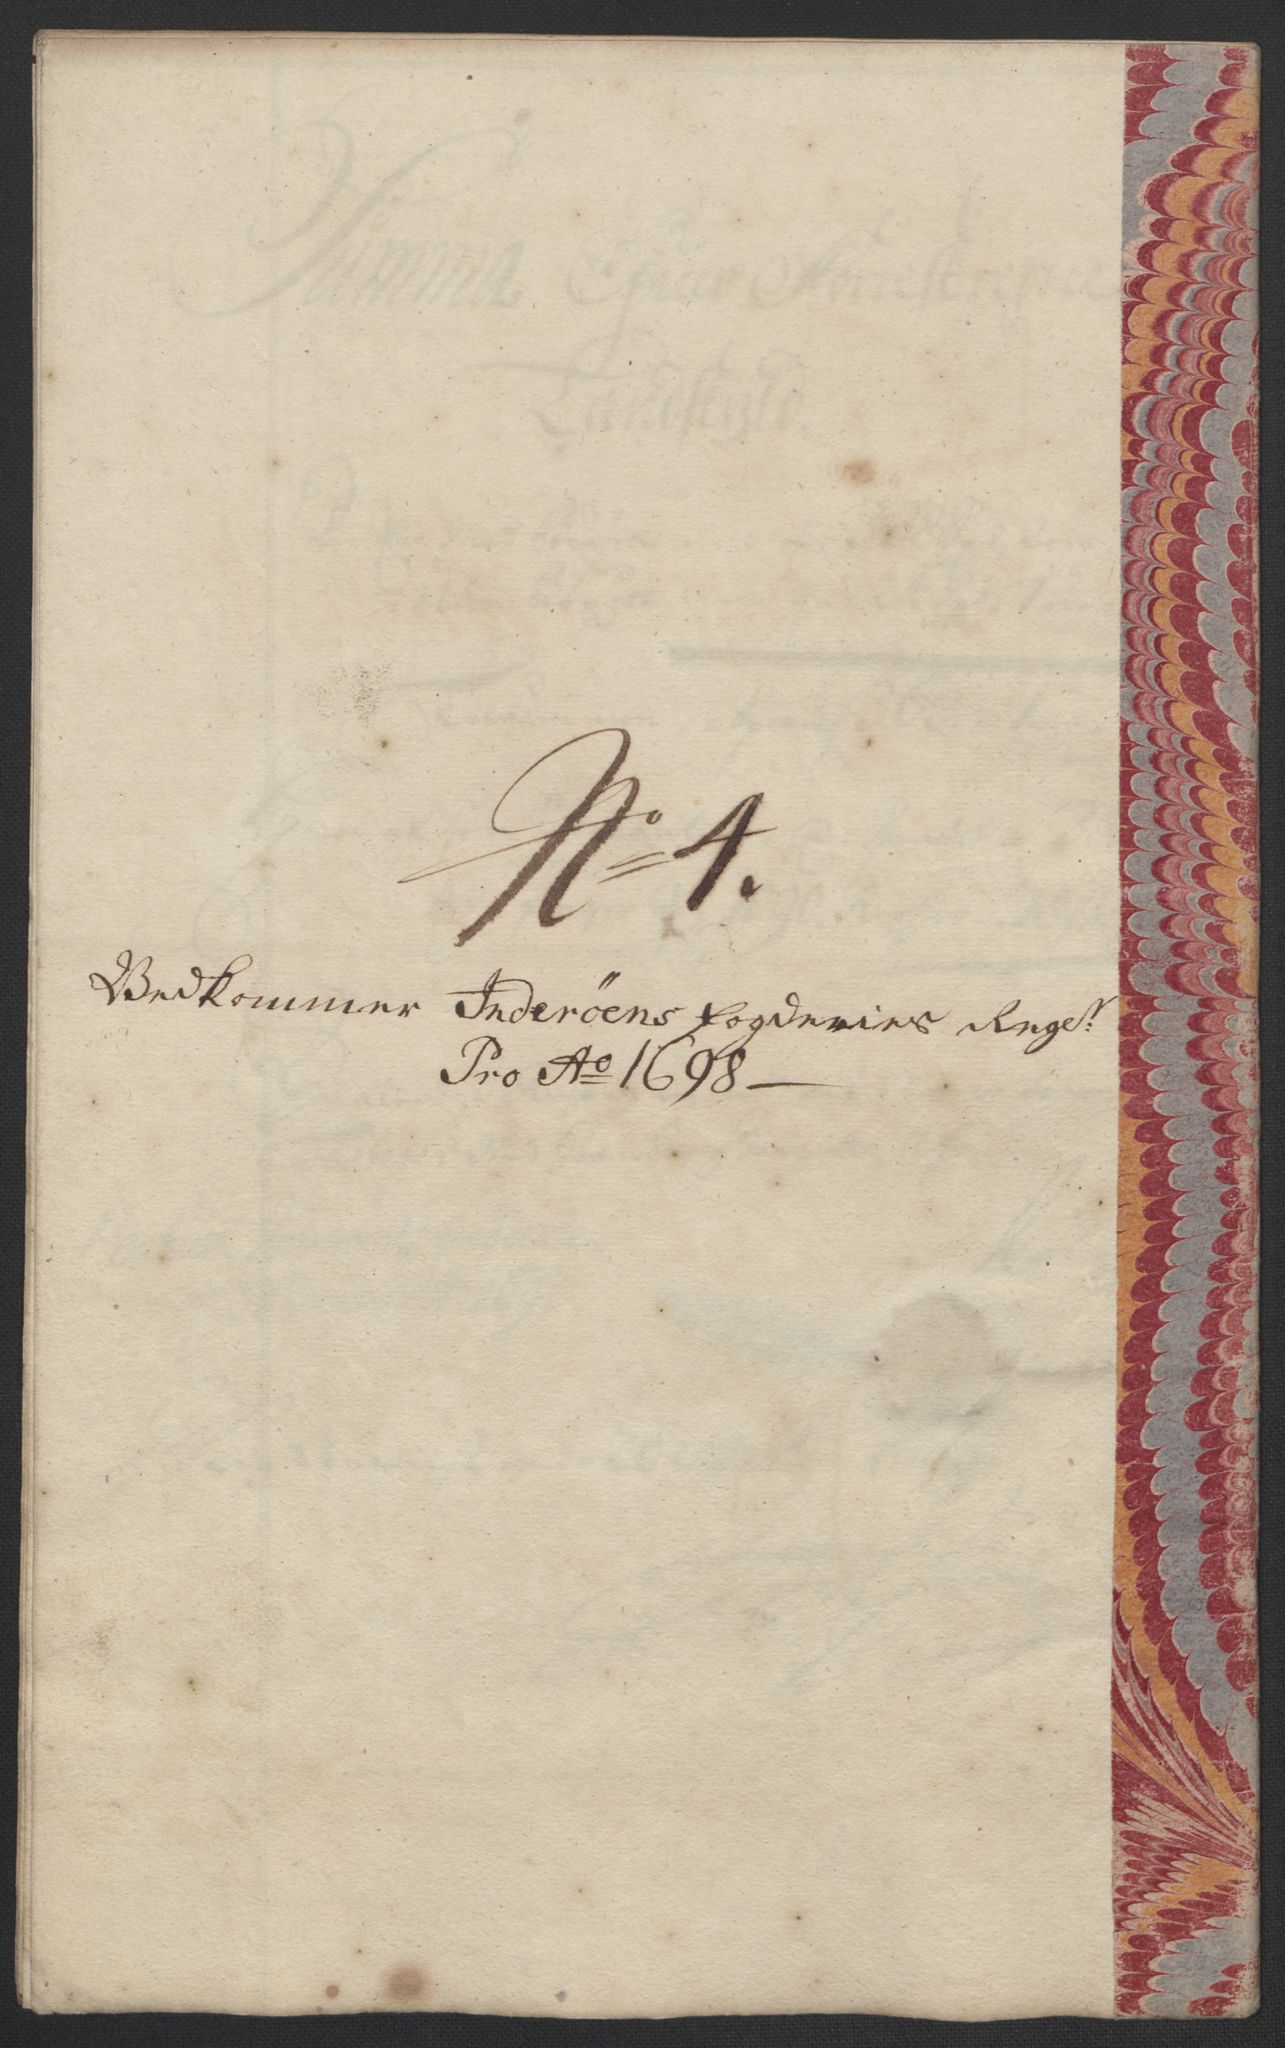 No 4.
Vedkommer Inderöens fogderies Regr.
Pro Ao 1698